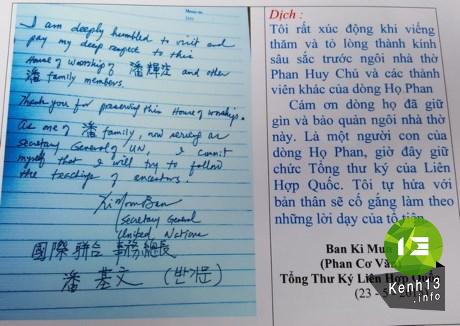 I am deeply humbled to visit and
pay my deep respect to this
House of worship of 潘輝注 and other
潘 family members.
Thank you for preserving this House of worship.
As one of 潘 family, now serving as
Secretary General of UN, I commit
myself that I will try to follow
the teachings of ancestors.
Ki Moon Ban
Secretary General
United Nations
國際聯合 事務總長
潘基文 (반기문)
Dịch :
Tôi rất xúc động khi viếng
thăm và tỏ lòng thành kính
sâu sắc trước ngôi nhà thờ
Phan Huy Chú và các thành
viên khác của dòng Họ Phan
Cám ơn dòng họ đã giữ
gìn và bảo quản ngôi nhà thờ
này. Là một người con của
dòng Họ Phan, giờ đây giữ
chức Tổng thư ký của Liên
Hợp Quốc. Tôi tự hứa với
bản thân sẽ cố gắng làm theo
những lời dạy của tổ tiên
Ban Ki Mun
(Phan Cơ Văn)
Tổng Thư Ký Liên Hợp Quố
(23 - 5
Kenh13
.info